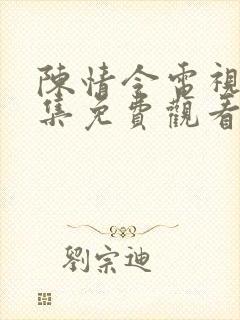 陳情令電視
集免費觀看
劉宗迪